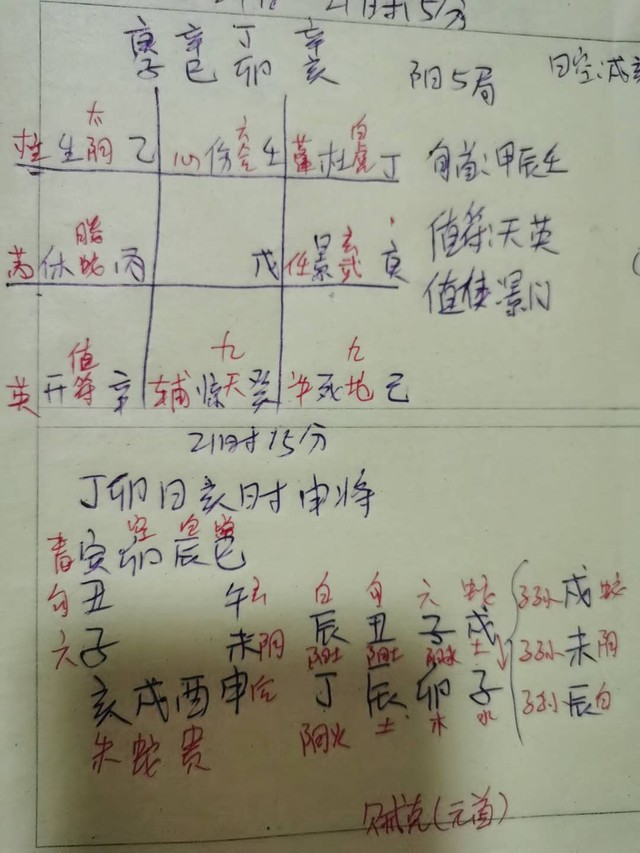 21时15分
庚 辛 丁 辛
子 巳 卯 亥
阳5局
日空:戌亥
柱 生 太阴 乙
心 伤 六合 壬
蓬 杜 白虎 丁
旬首:甲辰壬
芮 休 腾蛇 丙
戊
任 景 玄武 庚
值符:天英
值使:景门
英 开 值符 辛
辅 惊 九天 癸
死 九地 己
21时15分
丁卯日亥时申将
青 寅 卯 空 辰 白 巳
勾 丑 午 玄
六 子 未 阴
亥 戌 酉 申
朱 蛇 贵
白 勾 六 蛇
辰 丑 子 戌
阳土 阴土 阳水 土
丁 辰 卯 子
阴火 土 木 水
子孙 戌 蛇
子孙 未 阴
子孙 辰 白
贼克(元首)